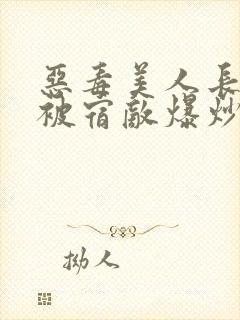 惡毒美人長
被宿敵爆炒
拗人